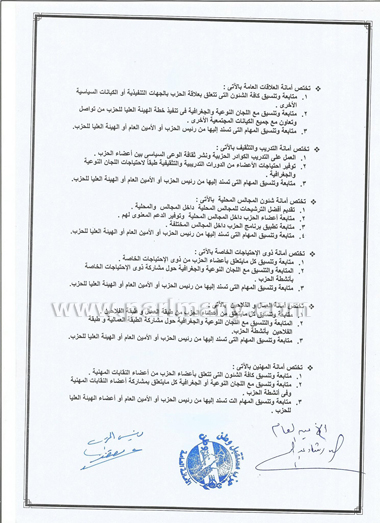 ❖ تختص أمانة العلاقات العامة بالأتى :
١. متابعة وتنسيق كافة الشئون التى تتعلق بعلاقة الحزب بالجهات التنفيذية أو الكيانات السياسية
الأخرى .
٢. متابعة وتنسيق مع اللجان النوعية والجغرافية فى تنفيذ خطة الهيئة العليا للحزب من تواصل
وتعاون مع جميع الكيانات المجتمعية الأخرى .
٣. متابعة وتنسيق المهام التى تسند إليها من رئيس الحزب أو الأمين العام أو الهيئة العليا للحزب.
❖ تختص أمانة التدريب والتثقيف بالأتى :
١. العمل على التدريب الكوادر الحزبية ونشر ثقافة الوعى السياسى بين أعضاء الحزب .
٢. توفير احتياجات الأعضاء من الدورات التدريبية والتثقيفية طبقاً لاحتياجات اللجان النوعية
والجغرافية .
٣. متابعة وتنسيق المهام التى تسند إليها من رئيس الحزب أو الأمين العام أو الهيئة العليا للحزب.
❖ تختص أمانة شئون المجالس المحلية بالأتى :
١. تقديم أفضل الترشيحات للمجالس المحلية داخل المجالس والمحلية .
٢. متابعة أعضاء الحزب داخل المجالس المحلية وتوفير الدعم المعنوى لهم .
٣. متابعة تطبيق برنامج الحزب داخل المجالس المختلفة .
٤. متابعة وتنسيق المهام التى تسند إليها من رئيس الحزب أو الأمين العام أو الهيئة العليا للحزب.
❖ تختص أمانة ذوى الإحتياجات الخاصة بالأتى :
١. متابعة وتنسيق كل مايتعلق بأعضاء الحزب من ذوى الإحتياجات الخاصة .
٢. المتابعة والتنسيق مع اللجان النوعية والجغرافية حول مشاركة ذوى الاحتياجات الخاصة
بأنشطة الحزب.
٣. متابعة وتنسيق المهام التى تسند إليها من رئيس الحزب أو الأمين العام أو الهيئة العليا للحزب.
❖ تختص أمانة العمال و الفلاحين بالأتى :
١. متابعة وتنسيق كل مايتعلق من أعضاء الحزب من طبقة العمال و طبقة الفلاحين
٢. المتابعة والتنسيق مع اللجان النوعية والجغرافية حول مشاركة الطبقة العمالية و طبقة
الفلاحين بأنشطة الحزب .
٣. متابعة وتنسيق المهام التى تسند إليها من رئيس الحزب أو الأمين العام أو الهيئة العليا للحزب.
❖ تختص أمانة المهنيين بالأتى :
١. متابعة وتنسيق كافة الشئون التى تتعلق بأعضاء الحزب من أعضاء النقابات المهنية .
٢. متابعة وتنسيق مع اللجان النوعية أو الجغرافية كل مايتعلق بمشاركة أعضاء النقابات المهنية
وفى أنشطة الحزب .
٣. متابعة وتنسيق المهام الت تسند إليها من رئيس الحزب أو الأمين العام أو أعضاء الهيئة العليا
للحزب .
الأمين العام
رئيس الحزب